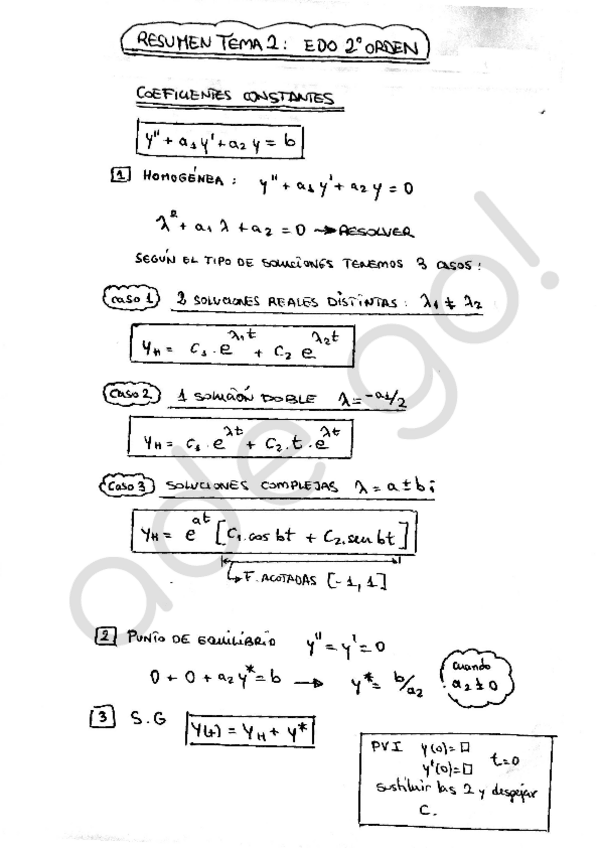 RESUMEN TEMA 2: EDO 2º ORDEN
COEFICIENTES CONSTANTES
y'' + a₁y' + a₂y = b
1 HOMOGÉNEA: y'' + a₁y' + a₂y = 0
λ² + a₁λ + a₂ = 0 → RESOLVER
SEGÚN EL TIPO DE SOLUCIONES TENEMOS 3 CASOS:
CASO 1 2 SOLUCIONES REALES DISTINTAS: λ₁ ≠ λ₂
Y_H = C₁·e^{λ₁t} + C₂ e^{λ₂t}
CASO 2 1 SOLUCIÓN DOBLE λ = -a₁/2
Y_H = C₁·e^{λt} + C₂·t·e^{λt}
CASO 3 SOLUCIONES COMPLEJAS λ = a ± bi
Y_H = e^{at} [C₁·cos bt + C₂·sen bt]
↳ F. ACOTADAS [-1, 1]
2 PUNTO DE EQUILIBRIO y'' = y' = 0
0 + 0 + a₂y* = b → y* = b/a₂
cuando
a₂ ≠ 0
3 S.G Y(t) = Y_H + y*
PVI y(0) = □
y'(0) = □ t=0
sustituir las 2 y despejar
C.
ade go!